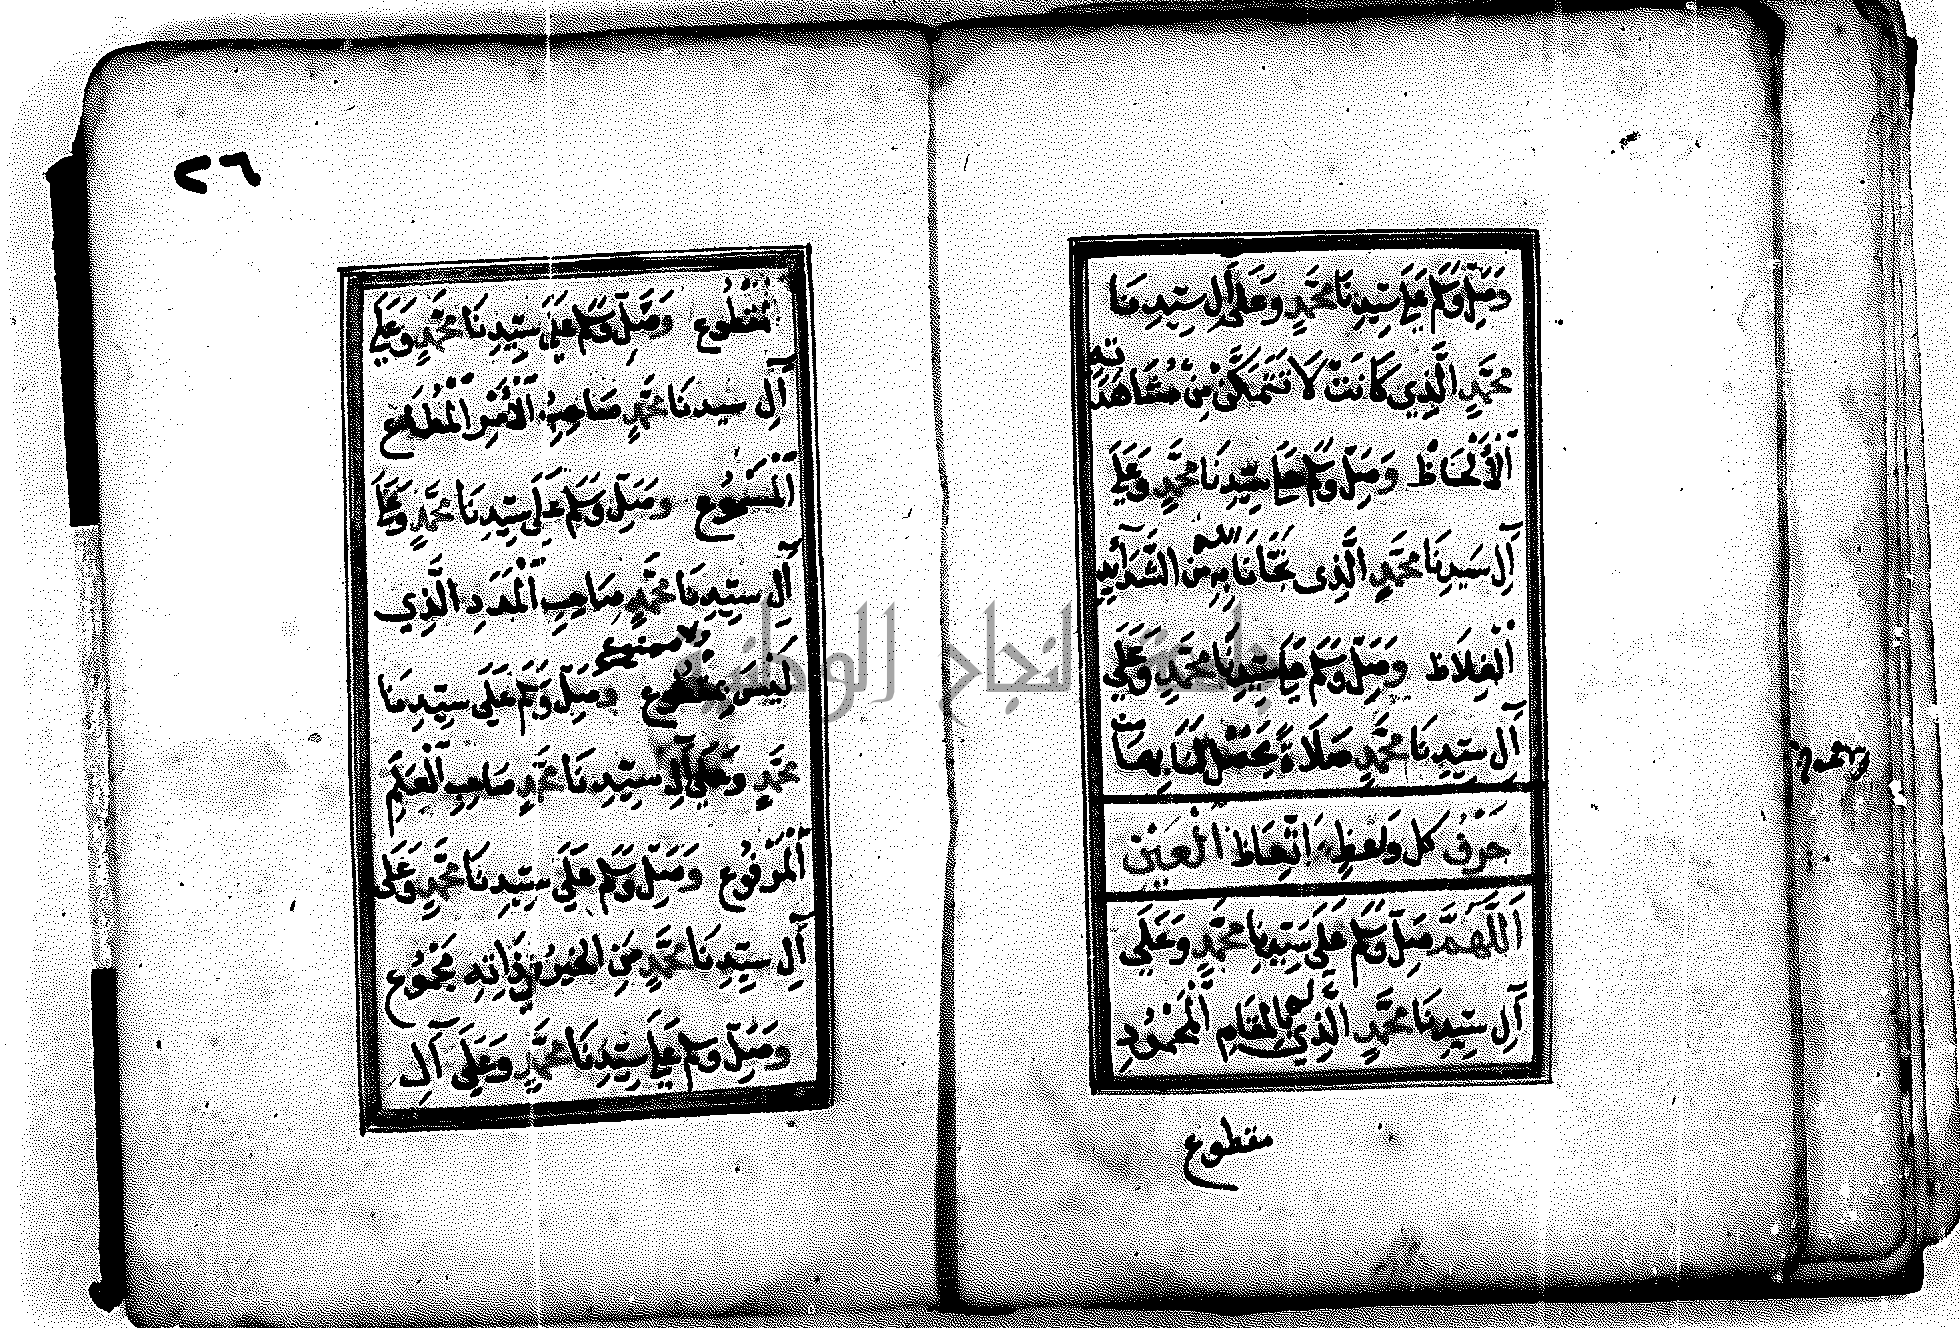 وَصَلِّ وَسَلِّمْ عَلَى سَيِّدِنَا مُحَمَّدٍ وَعَلَى آلِ سَيِّدِنَا
مُحَمَّدٍ الَّذِي كَانَتْ لَا تَتَمَكَّنُ مِنْ مُشَاهَدَتِهِ
الْأَلْحَاظْ وَصَلِّ وَسَلِّمْ عَلَى سَيِّدِنَا مُحَمَّدٍ وَعَلَى
آلِ سَيِّدِنَا مُحَمَّدٍ الَّذِى نَجَّانَا اللَّهُ بِهِ مِنَ الشَّدَائِدِ
الْغِلَاظْ وَصَلِّ وَسَلِّمْ عَلَى سَيِّدِنَا مُحَمَّدٍ وَعَلَى
آلِ سَيِّدِنَا مُحَمَّدٍ صَلَاةً يَحْصُلُ لَنَا بِهَا مِنْ
حَرْفِ كُلِّ وَلَفْظٍ اتِّعَاظْ الْعَيْنِ
اَللَّهُمَّ صَلِّ وَسَلِّمْ عَلَى سَيِّدِنَا مُحَمَّدٍ وَعَلَى
آلِ سَيِّدِنَا مُحَمَّدٍ الَّذِي لِوَا الْمَقَامِ الْمَحْمُودِ
مقطوع
٢٦
مَقْطُوع وَصَلِّ وَسَلِّمْ عَلَى سَيِّدِنَا مُحَمَّدٍ وَعَلَى
آلِ سَيِّدِنَا مُحَمَّدٍ صَاحِبِ الْأَمْرِ الْمُطَاعِ
الْمَسْمُوع وَصَلِّ وَسَلِّمْ عَلَى سَيِّدِنَا مُحَمَّدٍ وَعَلَى
آلِ سَيِّدِنَا مُحَمَّدٍ صَاحِبِ الْمَدَدِ الَّذِي
لَيْسَ بِمَقْطُوعٍ وَلَا ممنوع وَصَلِّ وَسَلِّمْ عَلَى سَيِّدِنَا
مُحَمَّدٍ وَعَلَى آلِ سَيِّدِنَا مُحَمَّدٍ صَاحِبِ الْعَلَمِ
الْمَرْفُوع وَصَلِّ وَسَلِّمْ عَلَى سَيِّدِنَا مُحَمَّدٍ وَعَلَى
آلِ سَيِّدِنَا مُحَمَّدٍ مَنِ الْخَيْرُ فِي ذَاتِهِ مَجْمُوع
وَصَلِّ وَسَلِّمْ عَلَى سَيِّدِنَا مُحَمَّدٍ وَعَلَى آلِ
جامعة النجاح الوطنية